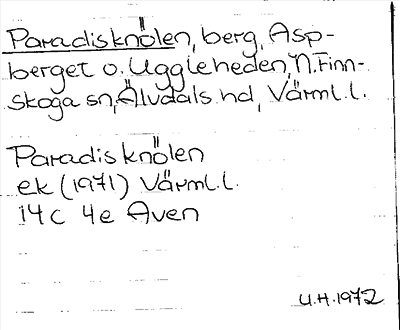 Paradisknölen, berg, Asp-
berget o. Uggleheden, N. Finn-
skoga sn, Älvdals hd, Värml. l.
Paradisknölen
ek (1971) Värml. l.
14c 4e Aven
U.H. 1972